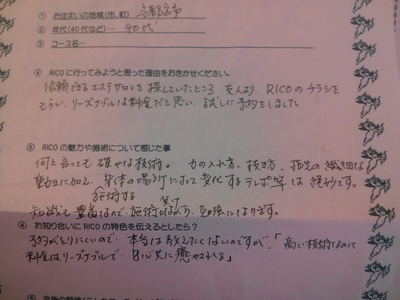 ① お住まいの地域(市、町) 宇都宮市
② 年代(40代など)… 40代
③ コース名…
④ RICOに行ってみようと思った理由をおきかせください。
信頼できるエステサロンを探していたところ 友人より、RICOのチラシを
もらい、リーズナブルな料金だと思い、試しに予約をしました
⑤ RICOの魅力や施術について感じた事
何と言っても確かな技術。力の入れ方、抜き方、指先の繊細な
動きに加え、身体の場所によって変化するテンポ等は絶妙です。
施術する
知識も豊富なので施術を受けながら、勉強になります。
④ お知り合いにRICOの特色を伝えるとしたら？
予約がとりにくいので、本当は教えたくないのですが、「高い技術なのに
料金はリーズナブルで、身心共に癒やされる」